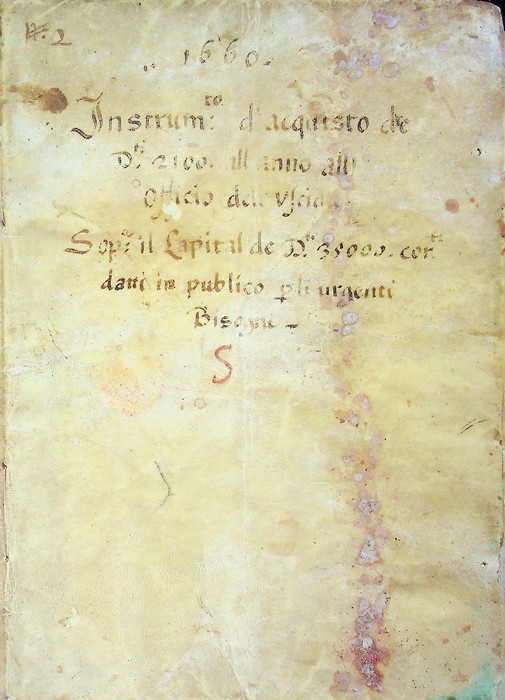 N.º 2
1660.
Instrum.to d'acquisto de
D.ti 2100. all anno all
Officio del
Sop.ª il Capital de D.ti 35000. cor.ti
datti in publico p li urgenti
Bisogni
S